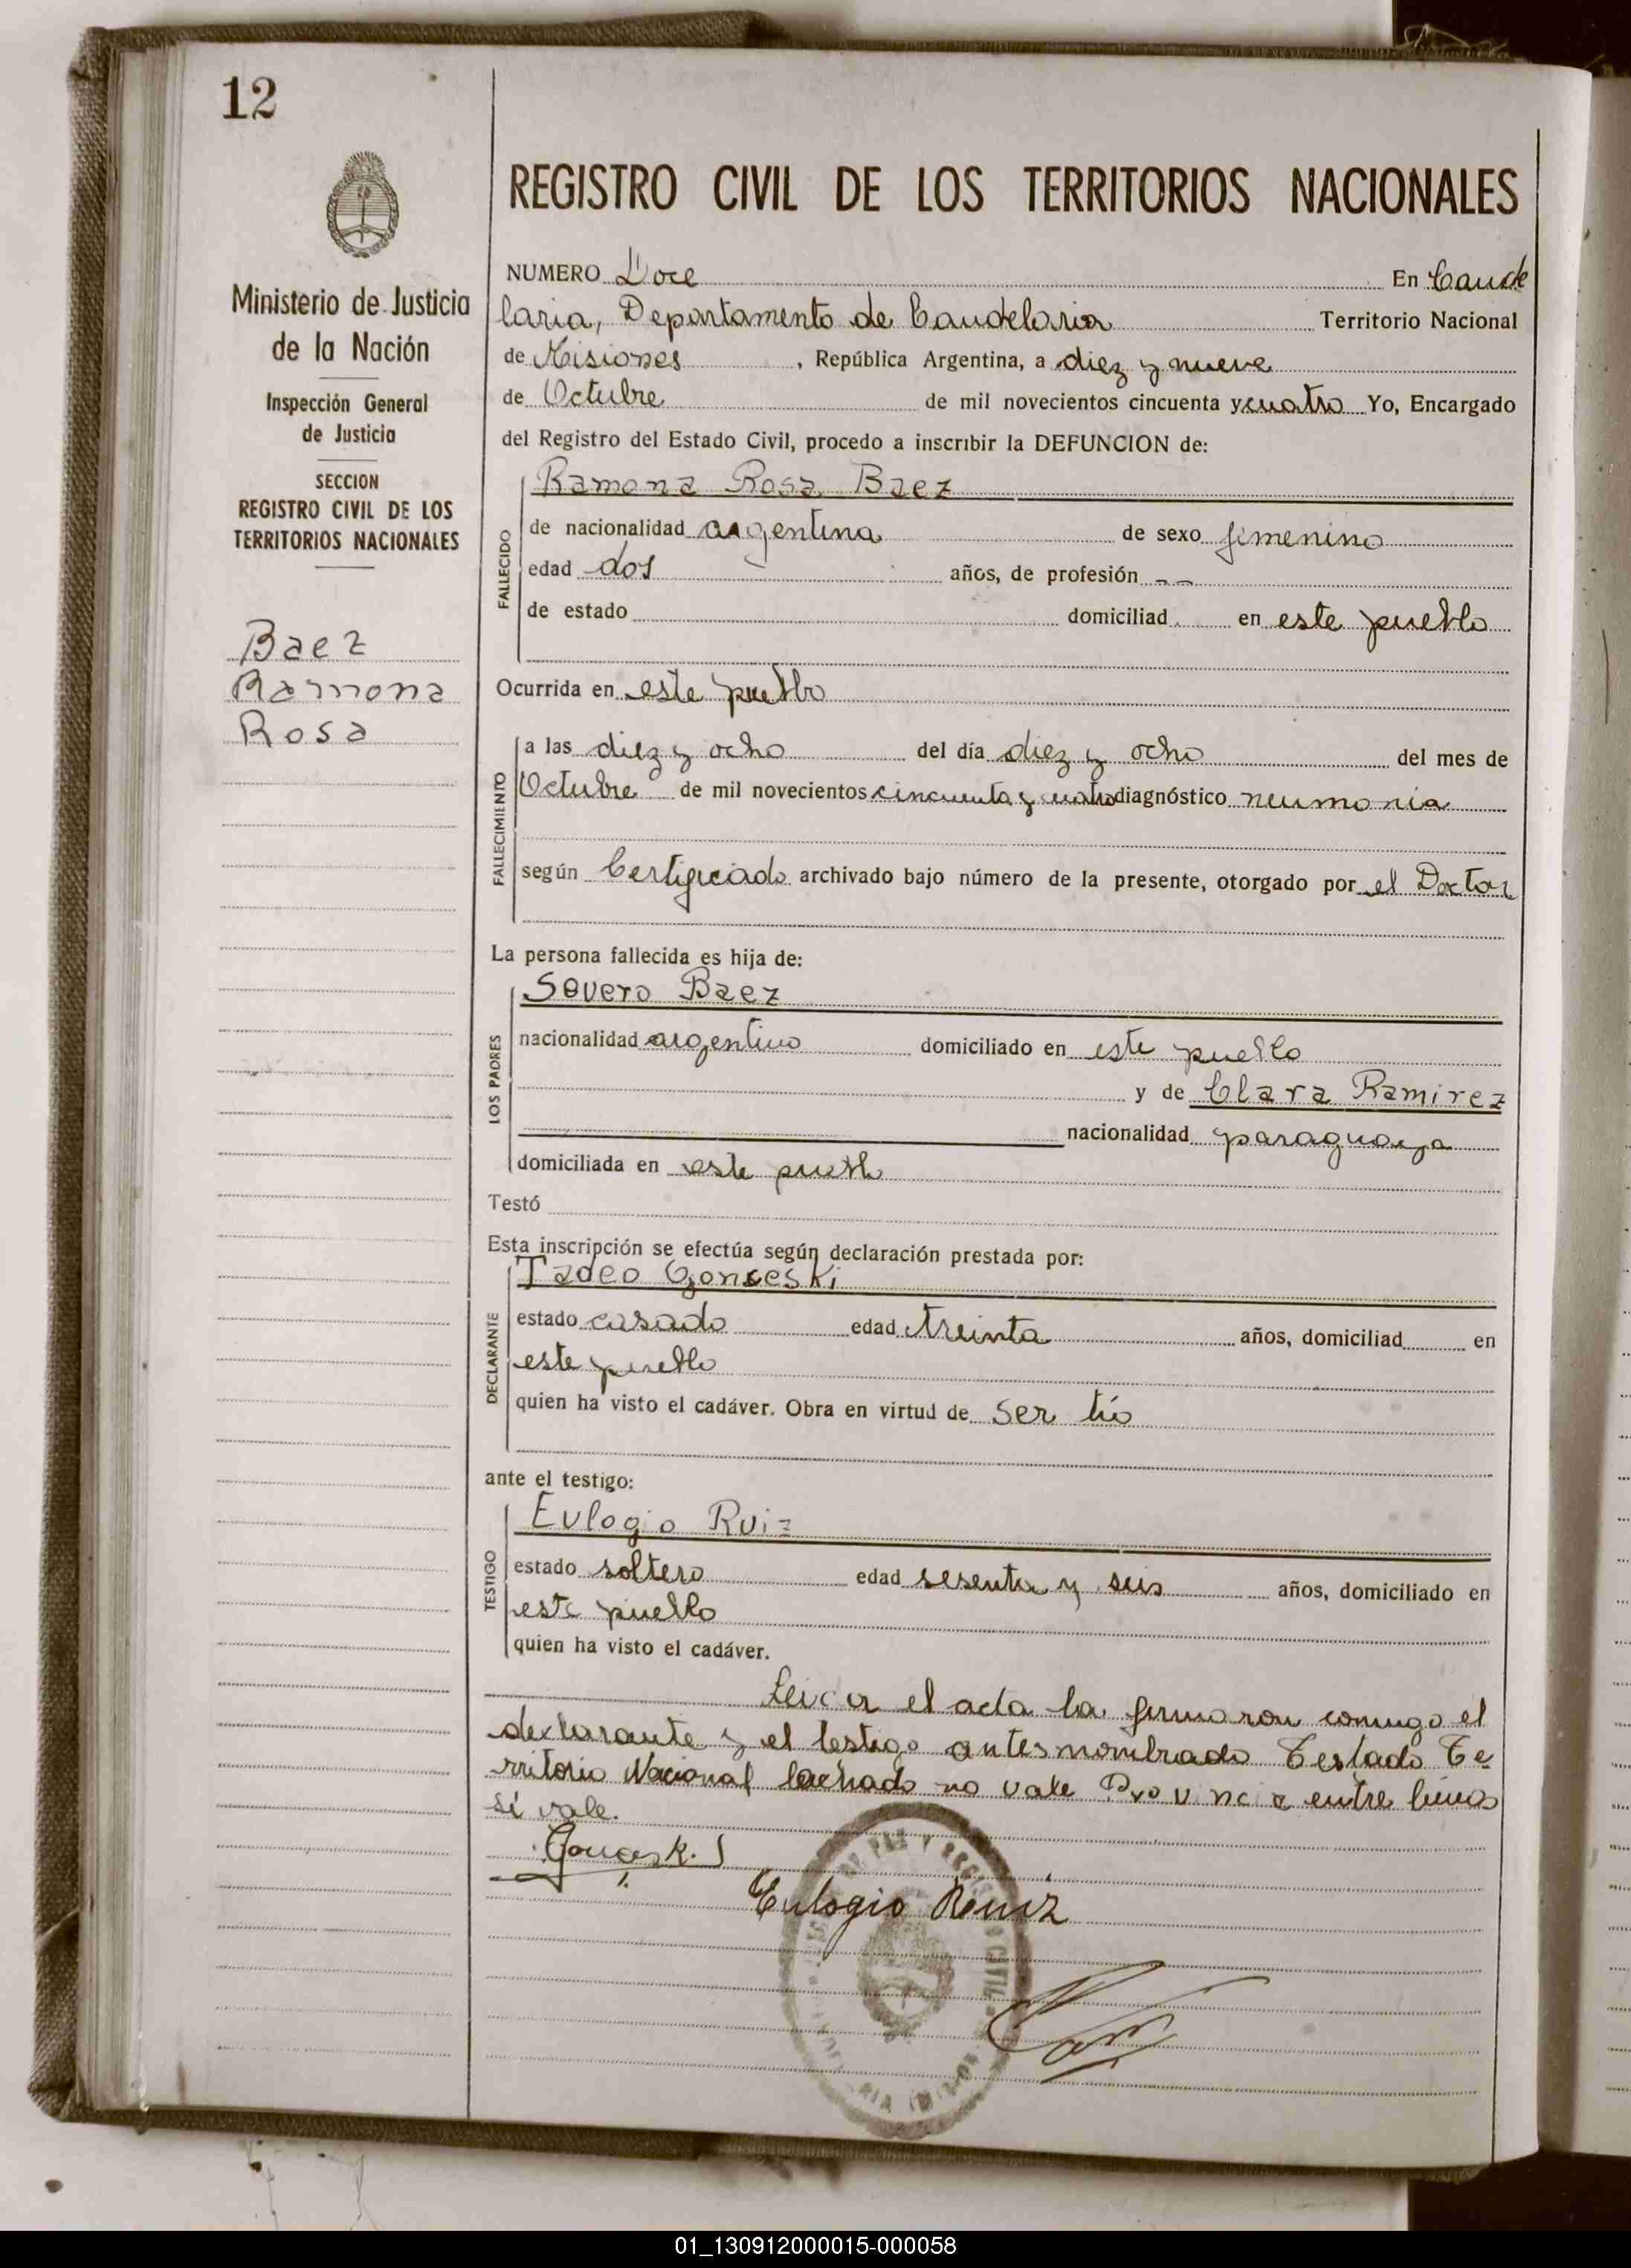 12
Ministerio de Justicia
de la Nación
Inspección General
de Justicia
SECCION
REGISTRO CIVIL DE LOS
TERRITORIOS NACIONALES
Baez
Ramona
Rosa
REGISTRO CIVIL DE LOS TERRITORIOS NACIONALES
NUMERO Doce En Cande
laria, Departamento de Candelaria Territorio Nacional
de Misiones, República Argentina, a diez y nueve
de Octubre de mil novecientos cincuenta y cuatro Yo, Encargado
del Registro del Estado Civil, procedo a inscribir la DEFUNCION de:
Ramona Rosa Baez
FALLECIDO
de nacionalidad argentina de sexo femenino
edad dos años, de profesión --
de estado domiciliad en este pueblo
Ocurrida en este pueblo
FALLECIMIENTO
a las diez y ocho del día diez y ocho del mes de
Octubre de mil novecientos cincuenta y cuatro diagnóstico neumonia
según Certificado archivado bajo número de la presente, otorgado por el Doctor
La persona fallecida es hija de:
Severo Baez
LOS PADRES
nacionalidad argentino domiciliado en este pueblo
y de Clara Ramirez
nacionalidad paraguaya
domiciliada en este pueblo
Testó
Esta inscripción se efectúa según declaración prestada por:
Tadeo Gonseski
DECLARANTE
estado casado edad treinta años, domiciliad en
este pueblo
quien ha visto el cadáver. Obra en virtud de ser tío
ante el testigo:
Eulogio Ruiz
TESTIGO
estado soltero edad sesenta y seis años, domiciliado en
este pueblo
quien ha visto el cadáver.
Leida el acta la firmaron conmigo el
declarante y el testigo antes nombrado Testado Te
rritorio Nacional tachado no vale Provincia entre lineas
sí vale.
Eulogio Ruiz
01_130912000015-000058